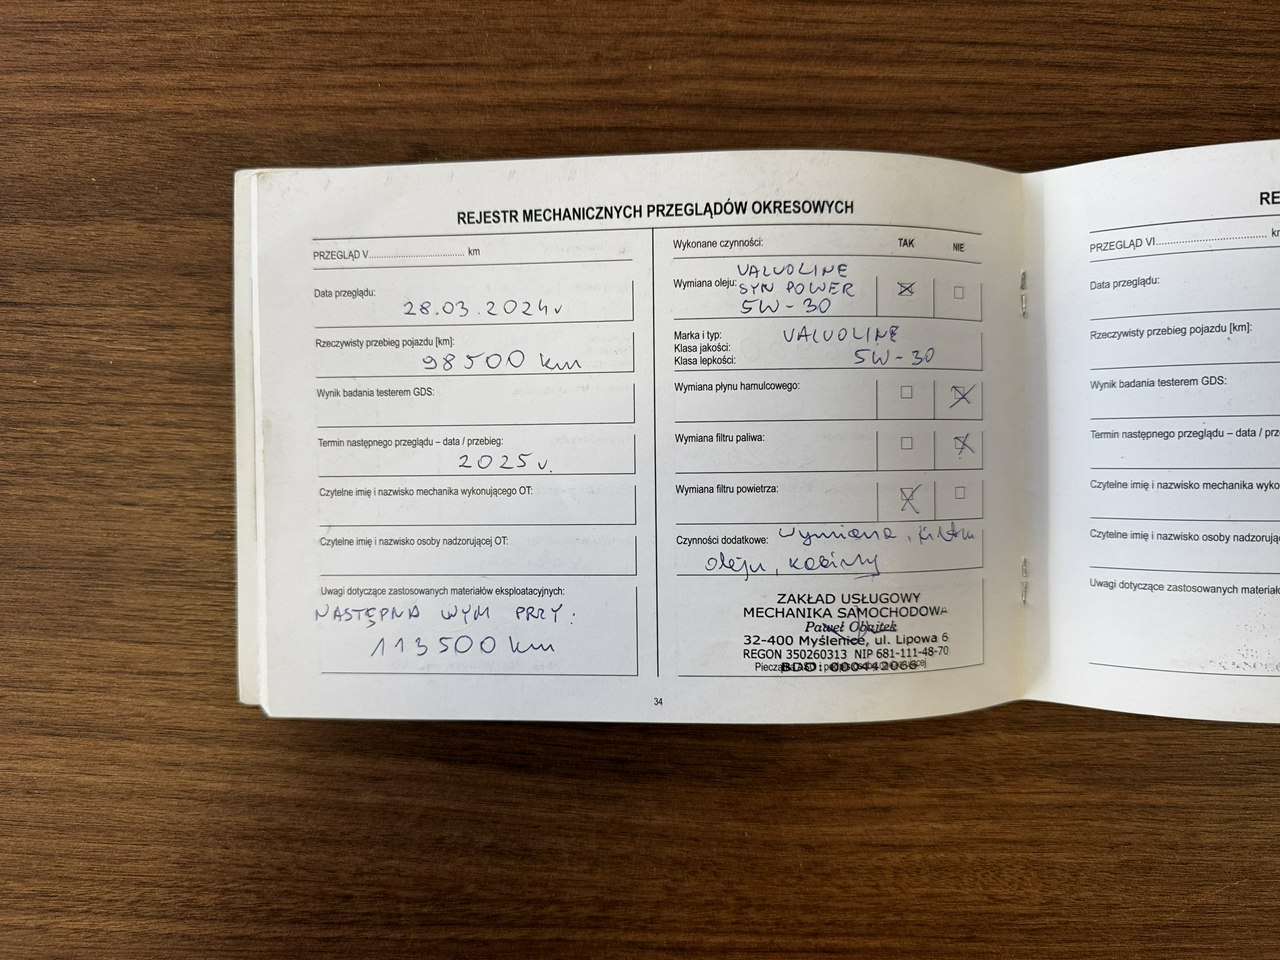 REJESTR MECHANICZNYCH PRZEGLĄDÓW OKRESOWYCH
PRZEGLĄD V........................................ km
Data przeglądu:
28.03.2024r
Rzeczywisty przebieg pojazdu [km]:
98500 km
Wynik badania testerem GDS:
Termin następnego przeglądu – data / przebieg:
2025r.
Czytelne imię i nazwisko mechanika wykonującego OT:
Czytelne imię i nazwisko osoby nadzorującej OT:
Uwagi dotyczące zastosowanych materiałów eksploatacyjnych:
NASTĘPNA WYM PRZY:
113500 km
Wykonane czynności: TAK NIE
VALVOLINE
Wymiana oleju: SYN POWER
5W-30
Marka i typ: VALVOLINE
Klasa jakości:
Klasa lepkości: 5W-30
Wymiana płynu hamulcowego:
Wymiana filtru paliwa:
Wymiana filtru powietrza:
Czynności dodatkowe: wymiana, filtru
oleju, kabiny
ZAKŁAD USŁUGOWY
MECHANIKA SAMOCHODOWA
Paweł Obajtek
32-400 Myślenice, ul. Lipowa 6
REGON 350260313 NIP 681-111-48-70
BDO: 000442066
34
RE
PRZEGLĄD VI........................................ km
Data przeglądu:
Rzeczywisty przebieg pojazdu [km]:
Wynik badania testerem GDS:
Termin następnego przeglądu – data / prz
Czytelne imię i nazwisko mechanika wyko
Czytelne imię i nazwisko osoby nadzorują
Uwagi dotyczące zastosowanych materiałó